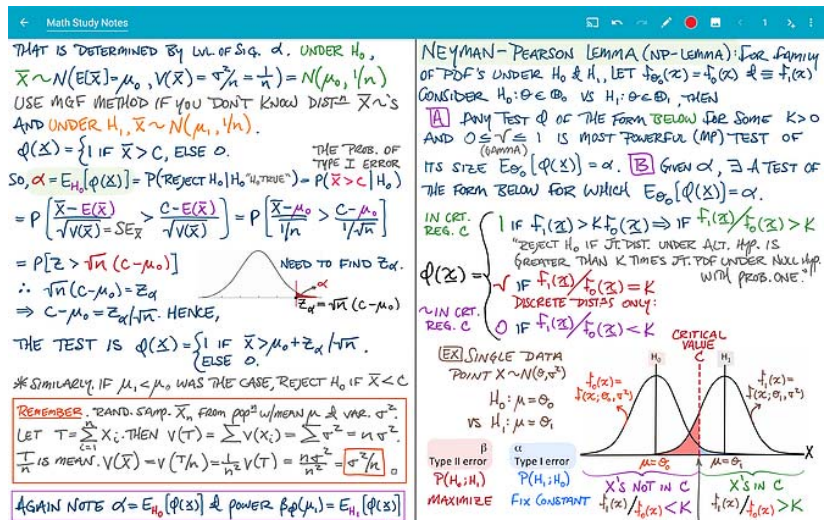 Math Study Notes
1
THAT IS DETERMINED BY LVL. OF SIG. α. UNDER H₀,
X̄ ~ N(E[x̄]=μ₀, V(x̄) = σ²/n = 1/n) = N(μ₀, 1/n)
USE MGF METHOD IF YOU DON'T KNOW DISTⁿ X̄ ~'S
AND UNDER H₁, X̄ ~ N(μ₁, 1/n).
φ(x) = {1 IF X̄ > C, ELSE 0.
THE PROB. OF
TYPE I ERROR
SO, α = E_H₀[φ(x)] = P(REJECT H₀|H₀ "H₀ TRUE") = P(X̄ > C | H₀)
= P[X̄ - E(X̄)/√V(X̄) = SE_x̄ > C - E(X̄)/√V(X̄)] = P[X̄ - μ₀/1/n > C - μ₀/1/√n]
= P[Z > √n (C - μ₀)]
NEED TO FIND Zα.
α
∴ √n (C - μ₀) = Zα
Zα = √n (C - μ₀)
⇒ C - μ₀ = Zα/√n. HENCE,
THE TEST IS φ(x) = {1 IF X̄ > μ₀ + Zα/√n.
ELSE 0.
* SIMILARLY, IF μ₁ < μ₀ WAS THE CASE, REJECT H₀ IF X̄ < C
REMEMBER. RAND. SAMP. X̄ₙ FROM POPⁿ W/MEAN μ & VAR. σ².
LET T = Σ Xᵢ. THEN V(T) = Σ V(Xᵢ) = Σ σ² = nσ².
T/n IS MEAN. V(X̄) = V(T/n) = 1/n² V(T) = nσ²/n² = σ²/n.
AGAIN NOTE α = E_H₀[φ(x)] & POWER βφ(μ₁) = E_H₁[φ(x)]
NEYMAN-PEARSON LEMMA (NP-LEMMA): FOR FAMILY
OF PDF'S UNDER H₀ & H₁, LET f_θ₀(x) = f₀(x) & ≡ f₁(x)
CONSIDER H₀: θ ∈ Θ₀ VS H₁: θ ∈ Θ₁, THEN
A ANY TEST φ OF THE FORM BELOW FOR SOME K>0
AND 0 ≤ γ ≤ 1 IS MOST POWERFUL (MP) TEST OF
(GAMMA)
ITS SIZE E_θ₀[φ(x)] = α. B GIVEN α, ∃ A TEST OF
THE FORM BELOW FOR WHICH E_θ₀[φ(x)] = α.
IN CRT. REG. C
1 IF f₁(x) > K f₀(x) ⇒ IF f₁(x)/f₀(x) > K
"REJECT H₀ IF JT. DIST. UNDER ALT. HYP. IS
GREATER THAN K TIMES JT. PDF UNDER NULL HYP.
WITH PROB. ONE."
φ(x) =
γ IF f₁(x)/f₀(x) = K
DISCRETE DIST'S ONLY:
~IN CRT. REG. C
0 IF f₁(x)/f₀(x) < K
CRITICAL
VALUE
C
EX SINGLE DATA
POINT X ~ N(θ, σ²)
H₀: μ = θ₀
VS H₁: μ = θ₁
H₀
H₁
f₀(x) =
f(x; θ₀, σ²)
f₁(x) =
f(x; θ₁, σ²)
X
μ = θ₀
μ = θ₁
β
Type II error
P(H₀; H₁)
MAXIMIZE
α
Type I error
P(H₁; H₀)
FIX CONSTANT
X'S NOT IN C
f₁(x)/f₀(x) < K
X'S IN C
f₁(x)/f₀(x) > K